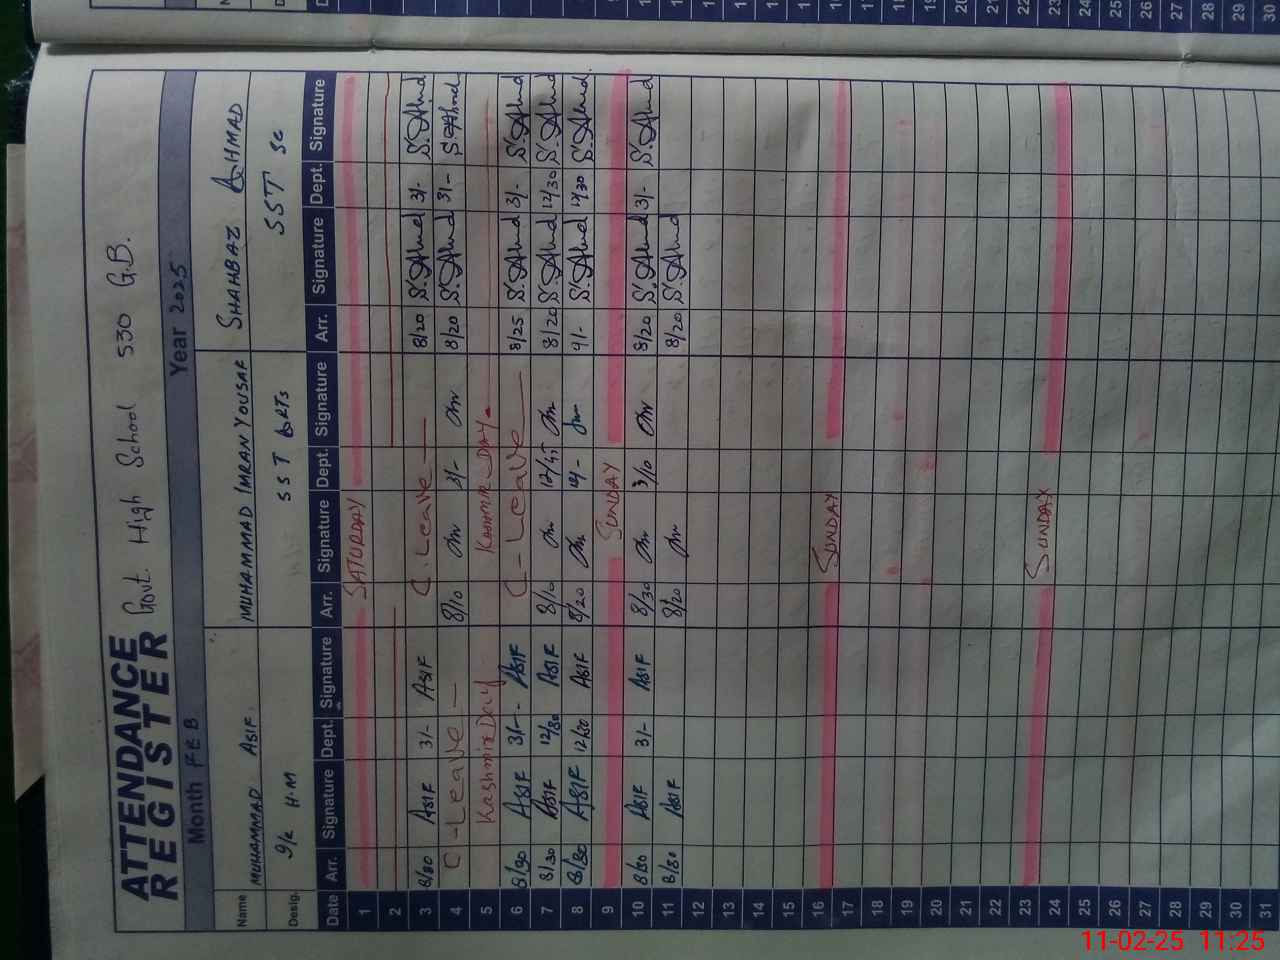 ATTENDANCE REGISTER Govt. High School 530 G.B.
Month FEB Year 2025
Name MUHAMMAD ASIF MUHAMMAD IMRAN YOUSAF SHAHBAZ AHMAD
Desig. I/c H.M SST ARTS SST Sc
Date Arr. Signature Dept. Signature Arr. Signature Dept. Signature Arr. Signature Dept. Signature
1 SATURDAY
2
3 8/30 ASIF 3/- ASIF C. Leave 8/20 S.Ahmd 3/- S.Ahmd
4 C-Leave 8/10 3/- 8/20 S.Ahmd 3/- S.Ahmd
5 Kashmir Day Kashmir DAY
6 8/30 ASIF 3/- ASIF C-Leave 8/25 S.Ahmd 3/- S.Ahmd
7 8/30 ASIF 12/30 ASIF 8/10 12/45 8/20 S.Ahmd 12/30 S.Ahmd
8 8/30 ASIF 12/30 ASIF 8/20 9/- S.Ahmd 12/30 S.Ahmd
9 SUNDAY
10 8/30 ASIF 3/- ASIF 8/30 3/10 8/20 S.Ahmd 3/- S.Ahmd
11 8/30 ASIF 8/20 8/20 S.Ahmd
12
13
14
15
16 SUNDAY
17
18
19
20
21
22
23 SUNDAY
24
25
26
27
28
29
30
31
11-02-25 11:25